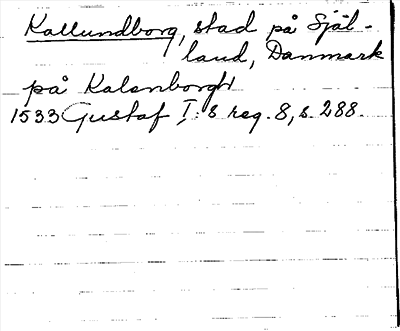 Kallundborg, stad på Själ-
land, Danmark
på Kalenborgh
1533 Gustaf I:s reg. 8, s. 288.